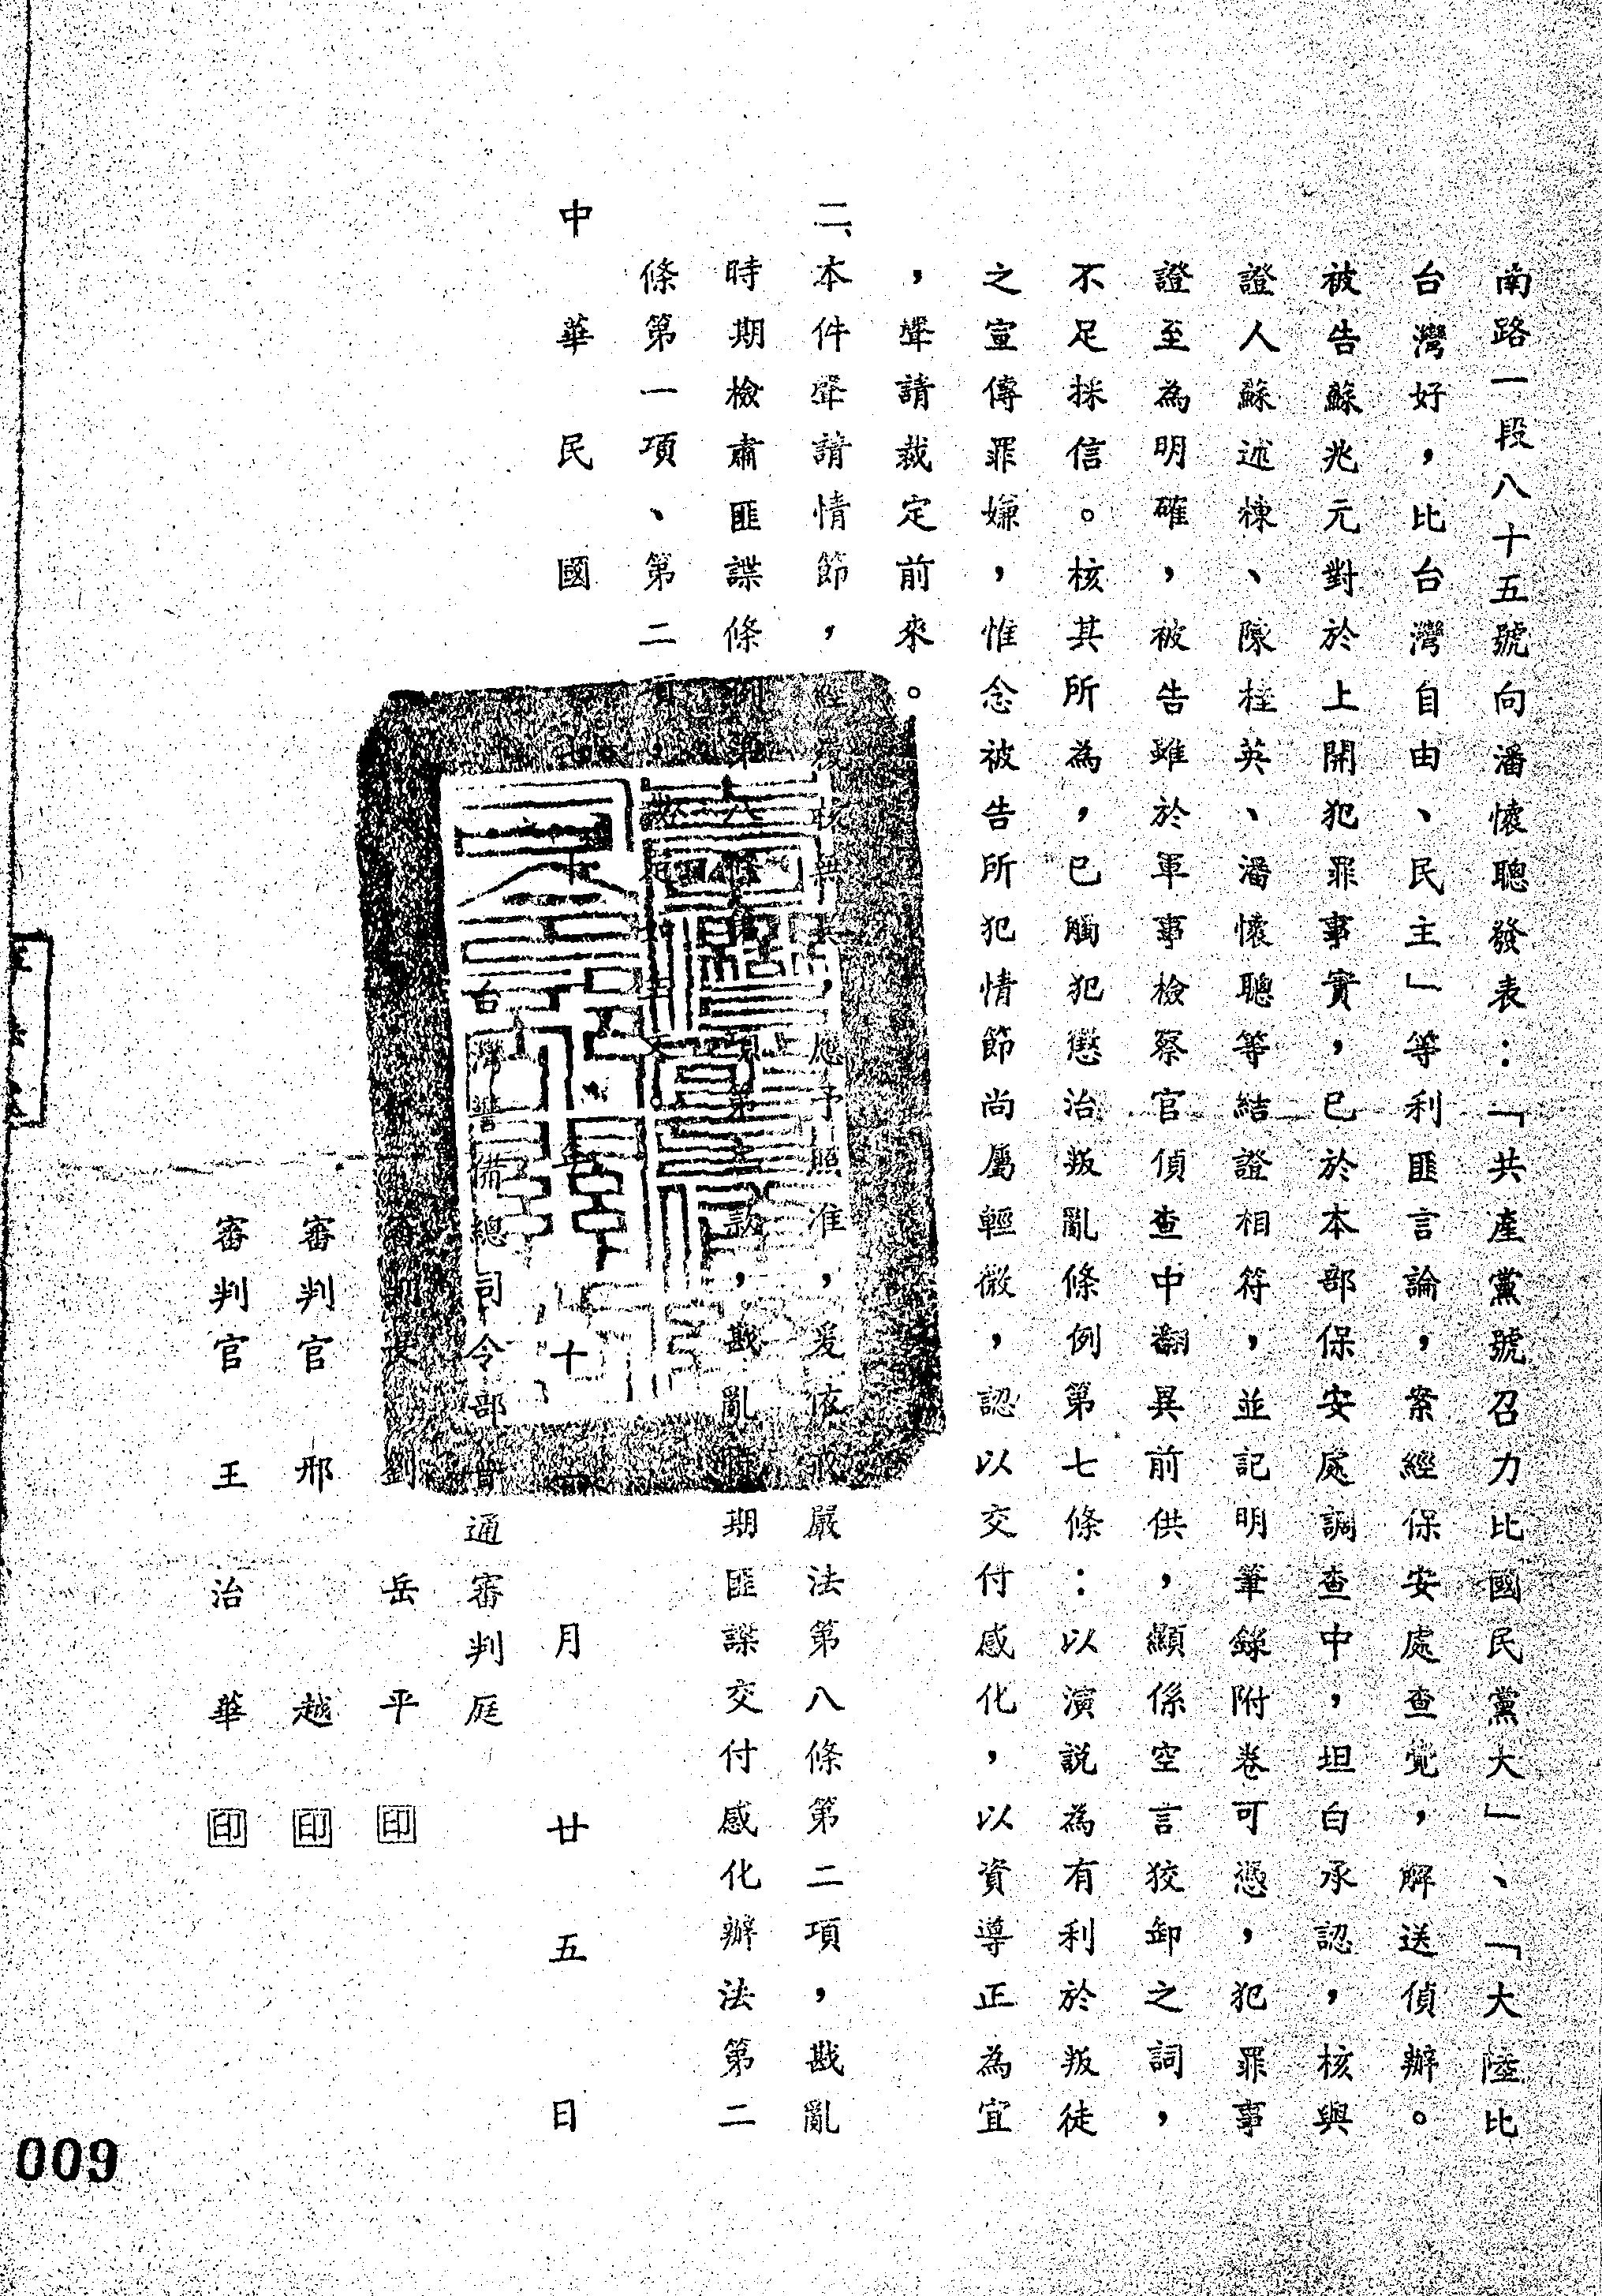 南路一段八十五號向潘懷聰發表：「共產黨號召力比國民黨大」、「大陸比
台灣好，比台灣自由、民主」等利匪言論，案經保安處查覺，解送偵辦。
被告蘇兆元對於上開犯罪事實，已於本部保安處調查中，坦白承認，核與
證人蘇述棟、陳桂英、潘懷聰等結證相符，並記明筆錄附卷可憑，犯罪事
證至為明確，被告雖於軍事檢察官偵查中翻異前供，顯係空言狡卸之詞，
不足採信。核其所為，已觸犯懲治叛亂條例第七條：以演說為有利於叛徒
之宣傳罪嫌，惟念被告所犯情節尚屬輕微，認以交付感化，以資導正為宜
，聲請裁定前來。
二、本件聲請情節，經核無，應予照准，爰依戒嚴法第八條第二項，戡亂
時期檢肅匪諜條例第八條第款，戡亂時期匪諜交付感化辦法第二
條第一項、第二項，裁定
中華民國年十月廿五日
台灣警備總司令部普通審判庭
審判長劉岳平印
審判官邢越印
審判官王治華印
009